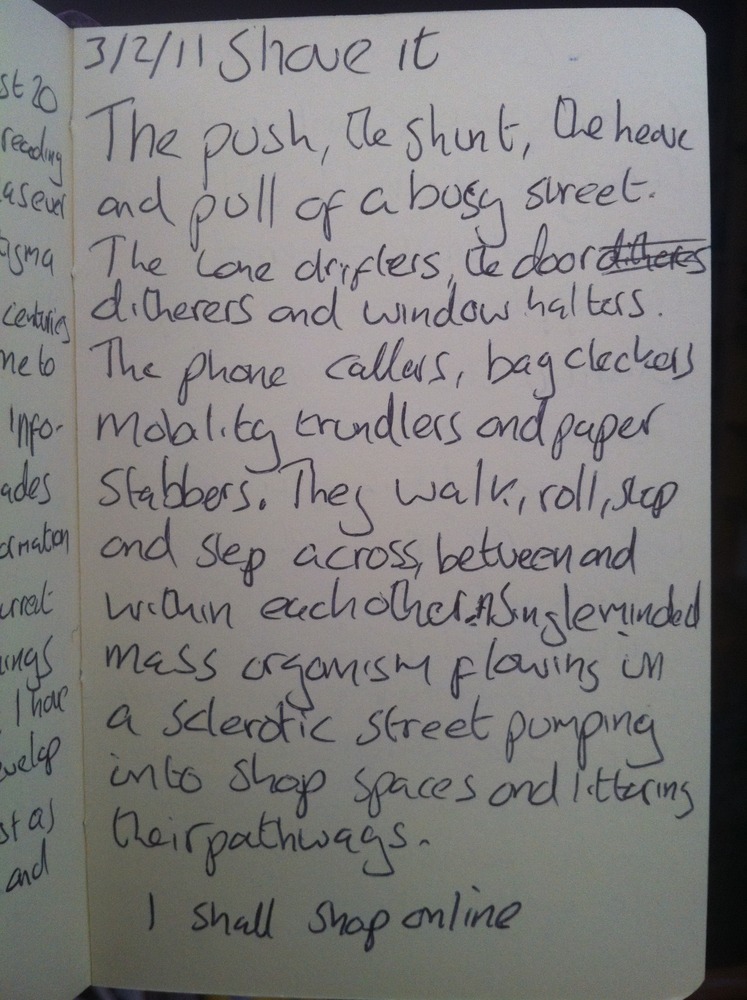 st 20
reading
as ever
centuries
me to
info-
ades
ormation
urrent
ings
I have
evelop
st as
and
3/2/11 Shove it
The push, the shunt, the heave
and pull of a busy street.
The lone drifters, the door ditherers
ditherers and window halters.
The phone callers, bag checkers
mobility trundlers and paper
stabbers. They walk, roll, stop
and step across, between and
within each other. A Single minded
mass organism flowing in
a sclerotic street pumping
into shop spaces and littering
their pathways.
I shall shop online